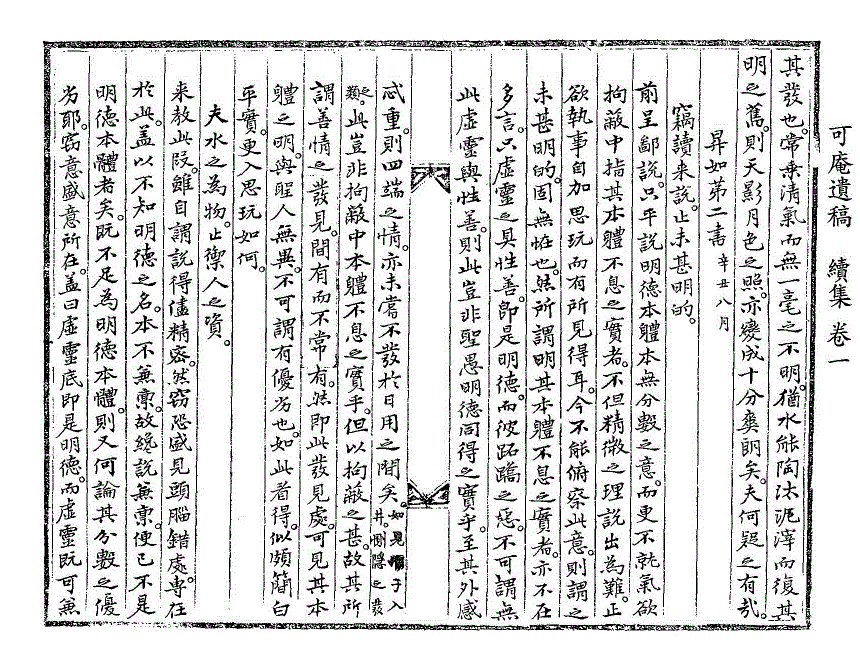 可庵遺稿　續集　卷一
其發也常乘淸氣而無一毫之不明猶水能陶汰泥滓而復其
明之舊則天影月色之照亦變成十分爽朗矣夫何疑之有哉
昇如第二書辛丑八月
竊讀來說止未甚明的
前呈鄙說只平說明德本體本無分數之意而更不就氣欲
拘蔽中指其本體不息之實者不但精微之理說出爲難正
欲執事自加思玩而有所見得耳今不能俯察此意則謂之
未甚明的固無怪也然所謂明其本體不息之實者亦不在
多言只虛靈之具性善卽是明德而彼跖蹻之惡不可謂無
此虛靈與性善則此豈非聖愚明德同得之實乎至其外感
忒重則四端之情亦未嘗不發於日用之閒矣如見孺子入井惻隱之發
之類此豈非拘蔽中本體不息之實乎但以拘蔽之甚故其所
謂善情之發見間有而不常有然卽此發見處可見其本
體之明與聖人無異不可謂有優劣也如此看得似頗簡白
平實更入思玩如何
夫水之爲物止禦人之資
來敎此段雖自謂說得儘精密然竊恐盛見頭腦錯處專在
於此盖以不知明德之名本不兼稟故纔說兼稟便已不是
明德本體者矣旣不足爲明德本體則又何論其分數之優
劣耶竊意盛意所在盖曰虛靈底卽是明德而虛靈旣可兼